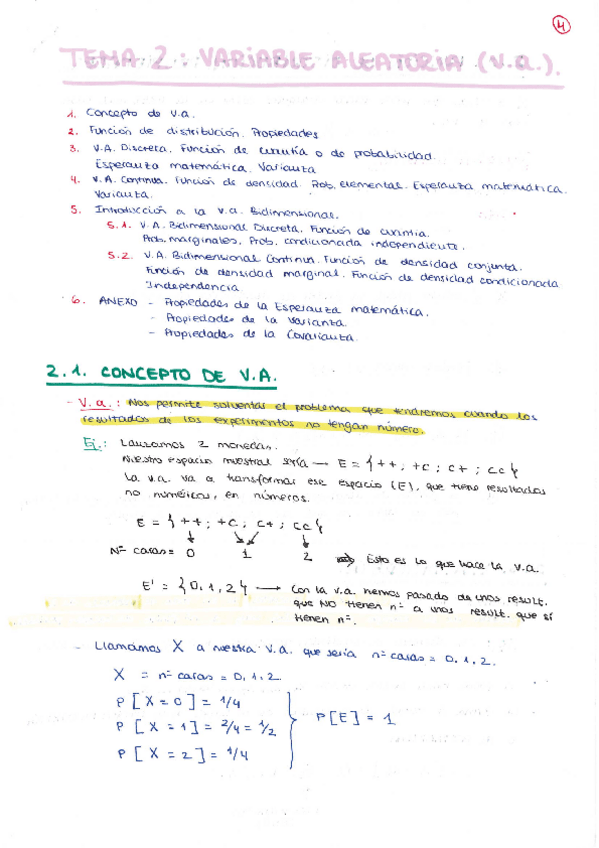 4
TEMA 2: VARIABLE ALEATORIA (V.a.).
1. Concepto de v.a.
2. Función de distribución. Propiedades
3. V.A. Discreta. Función de cuantía o de probabilidad.
Esperanza matemática. Varianza
4. V.A. Continua. Función de densidad. Prob. elemental. Esperanza matemática.
Varianza.
5. Introducción a la v.a. Bidimensional.
5.1. V.A. Bidimensional Discreta. Función de cuantía.
Prob. marginales. Prob. condicionada independiente.
5.2. V.A. Bidimensional Continua. Función de densidad conjunta.
Función de densidad marginal. Función de densidad condicionada
Independencia
6. ANEXO - Propiedades de la Esperanza matemática.
- Propiedades de la Varianza.
- Propiedades de la Covarianza.
2.1. CONCEPTO DE V.A.
- V.a.: Nos permite solventar el problema que tendremos cuando los
resultados de los experimentos no tengan número.
Ej.: Lanzamos 2 monedas.
Nuestro espacio muestral sería → E = {++; +c; c+; cc}
La v.a. va a transformar ese espacio (E), que tiene resultados
no numéricos, en números.
E = {++; +c; c+; cc}
Nº caras = 0 1 2 ⇒ Esto es lo que hace la v.a.
E' = {0,1,2} → Con la v.a. hemos pasado de unos result.
que NO tienen nº a unos result. que sí
tienen nº.
- Llamamos X a nuestra v.a. que sería nº caras = 0, 1, 2.
X = nº caras = 0, 1, 2.
P[X = 0] = 1/4
P[X = 1] = 2/4 = 1/2
P[E] = 1
P[X = 2] = 1/4